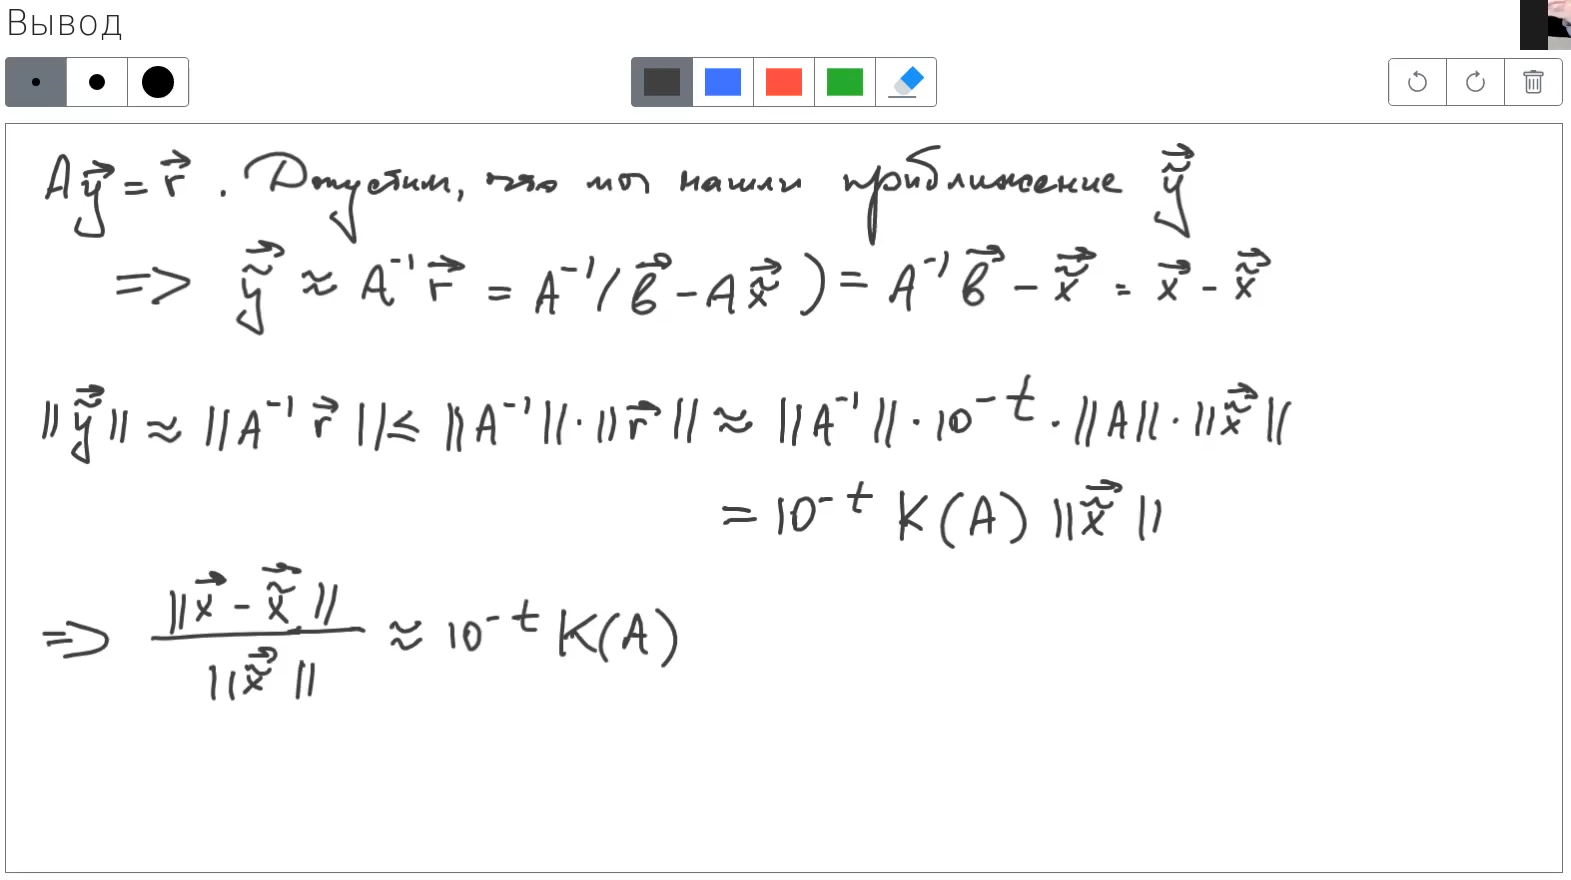 Вывод
A y⃗ = r⃗ . Допустим, что мы нашли приближение ỹ⃗
=> ỹ⃗ ≈ A⁻¹ r⃗ = A⁻¹(b⃗ - A x̃⃗) = A⁻¹ b⃗ - x̃⃗ = x⃗ - x̃⃗
||ỹ⃗|| ≈ ||A⁻¹ r⃗|| ≤ ||A⁻¹|| · ||r⃗|| ≈ ||A⁻¹|| · 10⁻ᵗ · ||A|| · ||x̃⃗||
= 10⁻ᵗ K(A) ||x̃⃗||
=> ||x⃗ - x̃⃗|| / ||x̃⃗|| ≈ 10⁻ᵗ K(A)